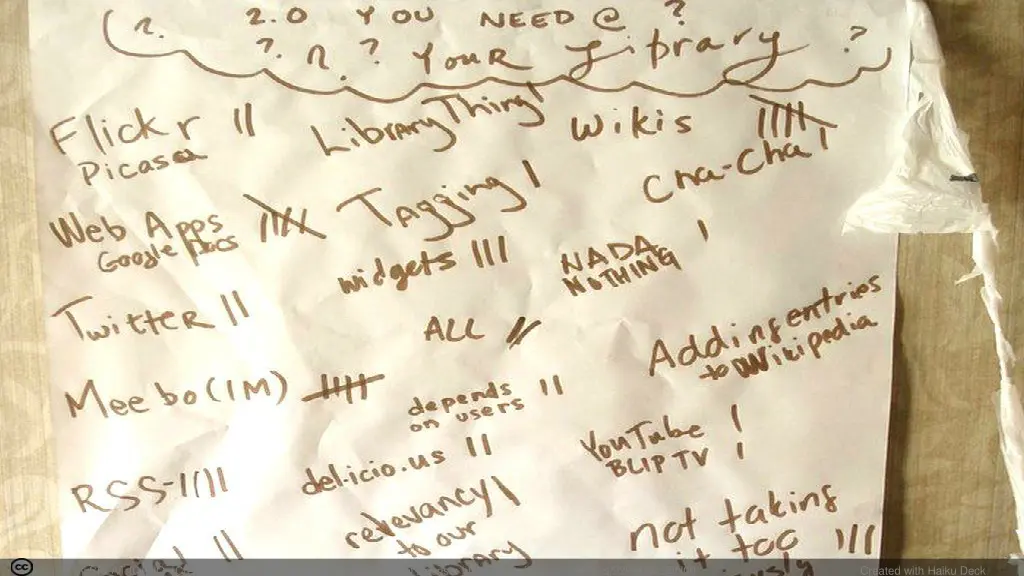 2.0 YOU NEED @ ?
?. ?. ? YOUR Library ?
Flickr ||
Picasa
Web Apps
Google Docs
Twitter ||
Meebo (IM)
RSS-||||
Social ||
LibraryThing |
Tagging |
widgets |||
ALL ||
depends ||
on users
del.icio.us ||
relevancy |
to our
library
Wikis
Cha-Cha |
NADA |
NOTHING
Adding entries
to Wikipedia
YouTube |
BLIP TV |
not taking
it too |||
Created with Haiku Deck